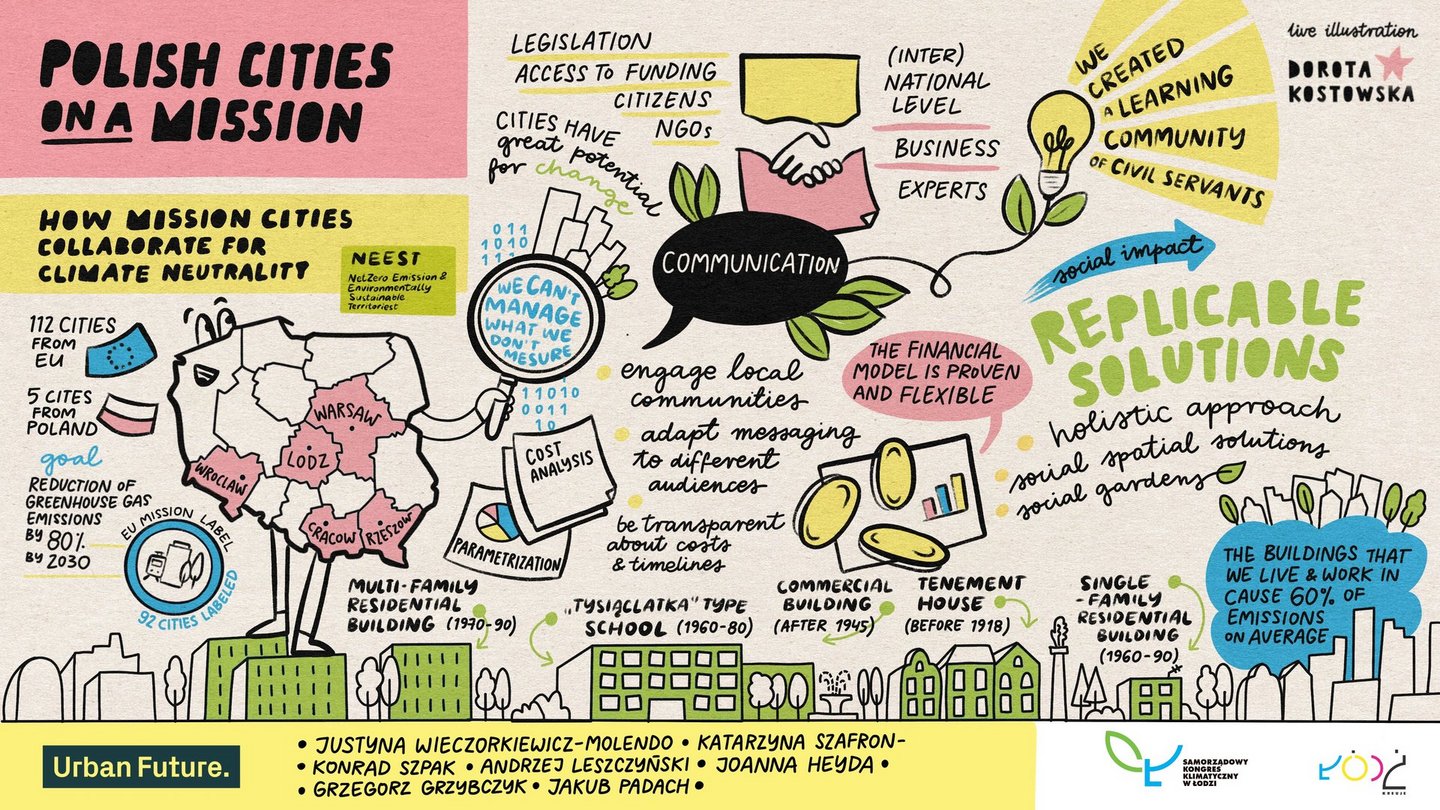 POLISH CITIES
ON A MISSION
HOW MISSION CITIES
COLLABORATE FOR
CLIMATE NEUTRALITY
NEEST
NetZero Emission &
Environmentally
Sustainable
Territoriest
112 CITIES
FROM
EU
5 CITES
FROM
POLAND
goal
REDUCTION OF
GREENHOUSE GAS
EMISSIONS
BY 80%
BY 2030
EU MISSION LABEL
92 CITIES LABELED
WARSAW
LODZ
WROCLAW
CRACOW
RZESZOW
LEGISLATION
ACCESS TO FUNDING
CITIZENS
NGOs
CITIES HAVE
great potential
for change
(INTER)
NATIONAL
LEVEL
BUSINESS
EXPERTS
COMMUNICATION
011
1010
111
WE CAN'T
MANAGE
WHAT WE
DON'T
MESURE
11010
0011
10
COST
ANALYSIS
PARAMETRIZATION
engage local
communities
adapt messaging
to different
audiences
be transparent
about costs
& timelines
WE
CREATED
A LEARNING
COMMUNITY
OF CIVIL SERVANTS
live illustration
DOROTA
KOSTOWSKA
social impact
REPLICABLE
SOLUTIONS
holistic approach
social spatial solutions
social gardens
THE FINANCIAL
MODEL IS PROVEN
AND FLEXIBLE
MULTI-FAMILY
RESIDENTIAL
BUILDING (1970-90)
„TYSIĄCLATKA" TYPE
SCHOOL (1960-80)
COMMERCIAL
BUILDING
(AFTER 1945)
TENEMENT
HOUSE
(BEFORE 1918)
SINGLE
-FAMILY
RESIDENTIAL
BUILDING
(1960-90)
THE BUILDINGS THAT
WE LIVE & WORK IN
CAUSE 60% OF
EMISSIONS
ON AVERAGE
Urban Future.
• JUSTYNA WIECZORKIEWICZ-MOLENDO • KATARZYNA SZAFRON-
• KONRAD SZPAK • ANDRZEJ LESZCZYŃSKI • JOANNA HEYDA •
• GRZEGORZ GRZYBCZYK • JAKUB PADACH •
SAMORZĄDOWY
KONGRES
KLIMATYCZNY
W ŁODZI
ŁÓDŹ
KREUJE